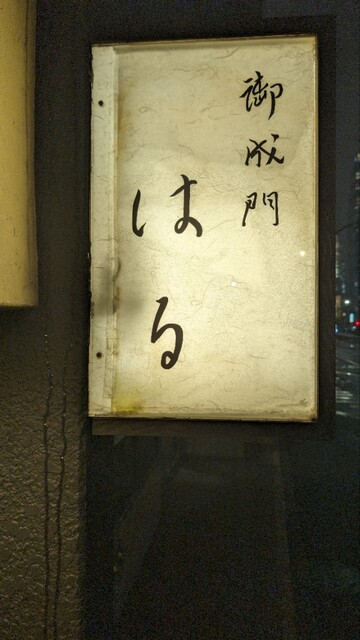 御成門
はる